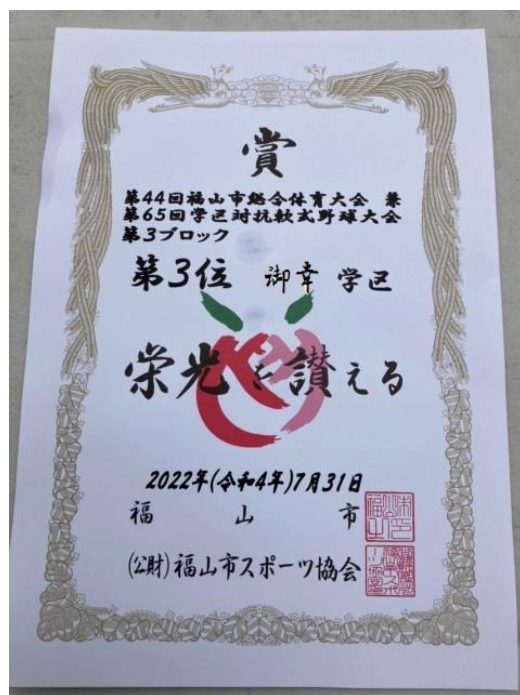 賞
第44回福山市総合体育大会 兼
第65回学区対抗軟式野球大会
第3ブロック
第3位 御幸 学区
栄光を讃える
2022年(令和4年)7月31日
福山市
(公財)福山市スポーツ協会